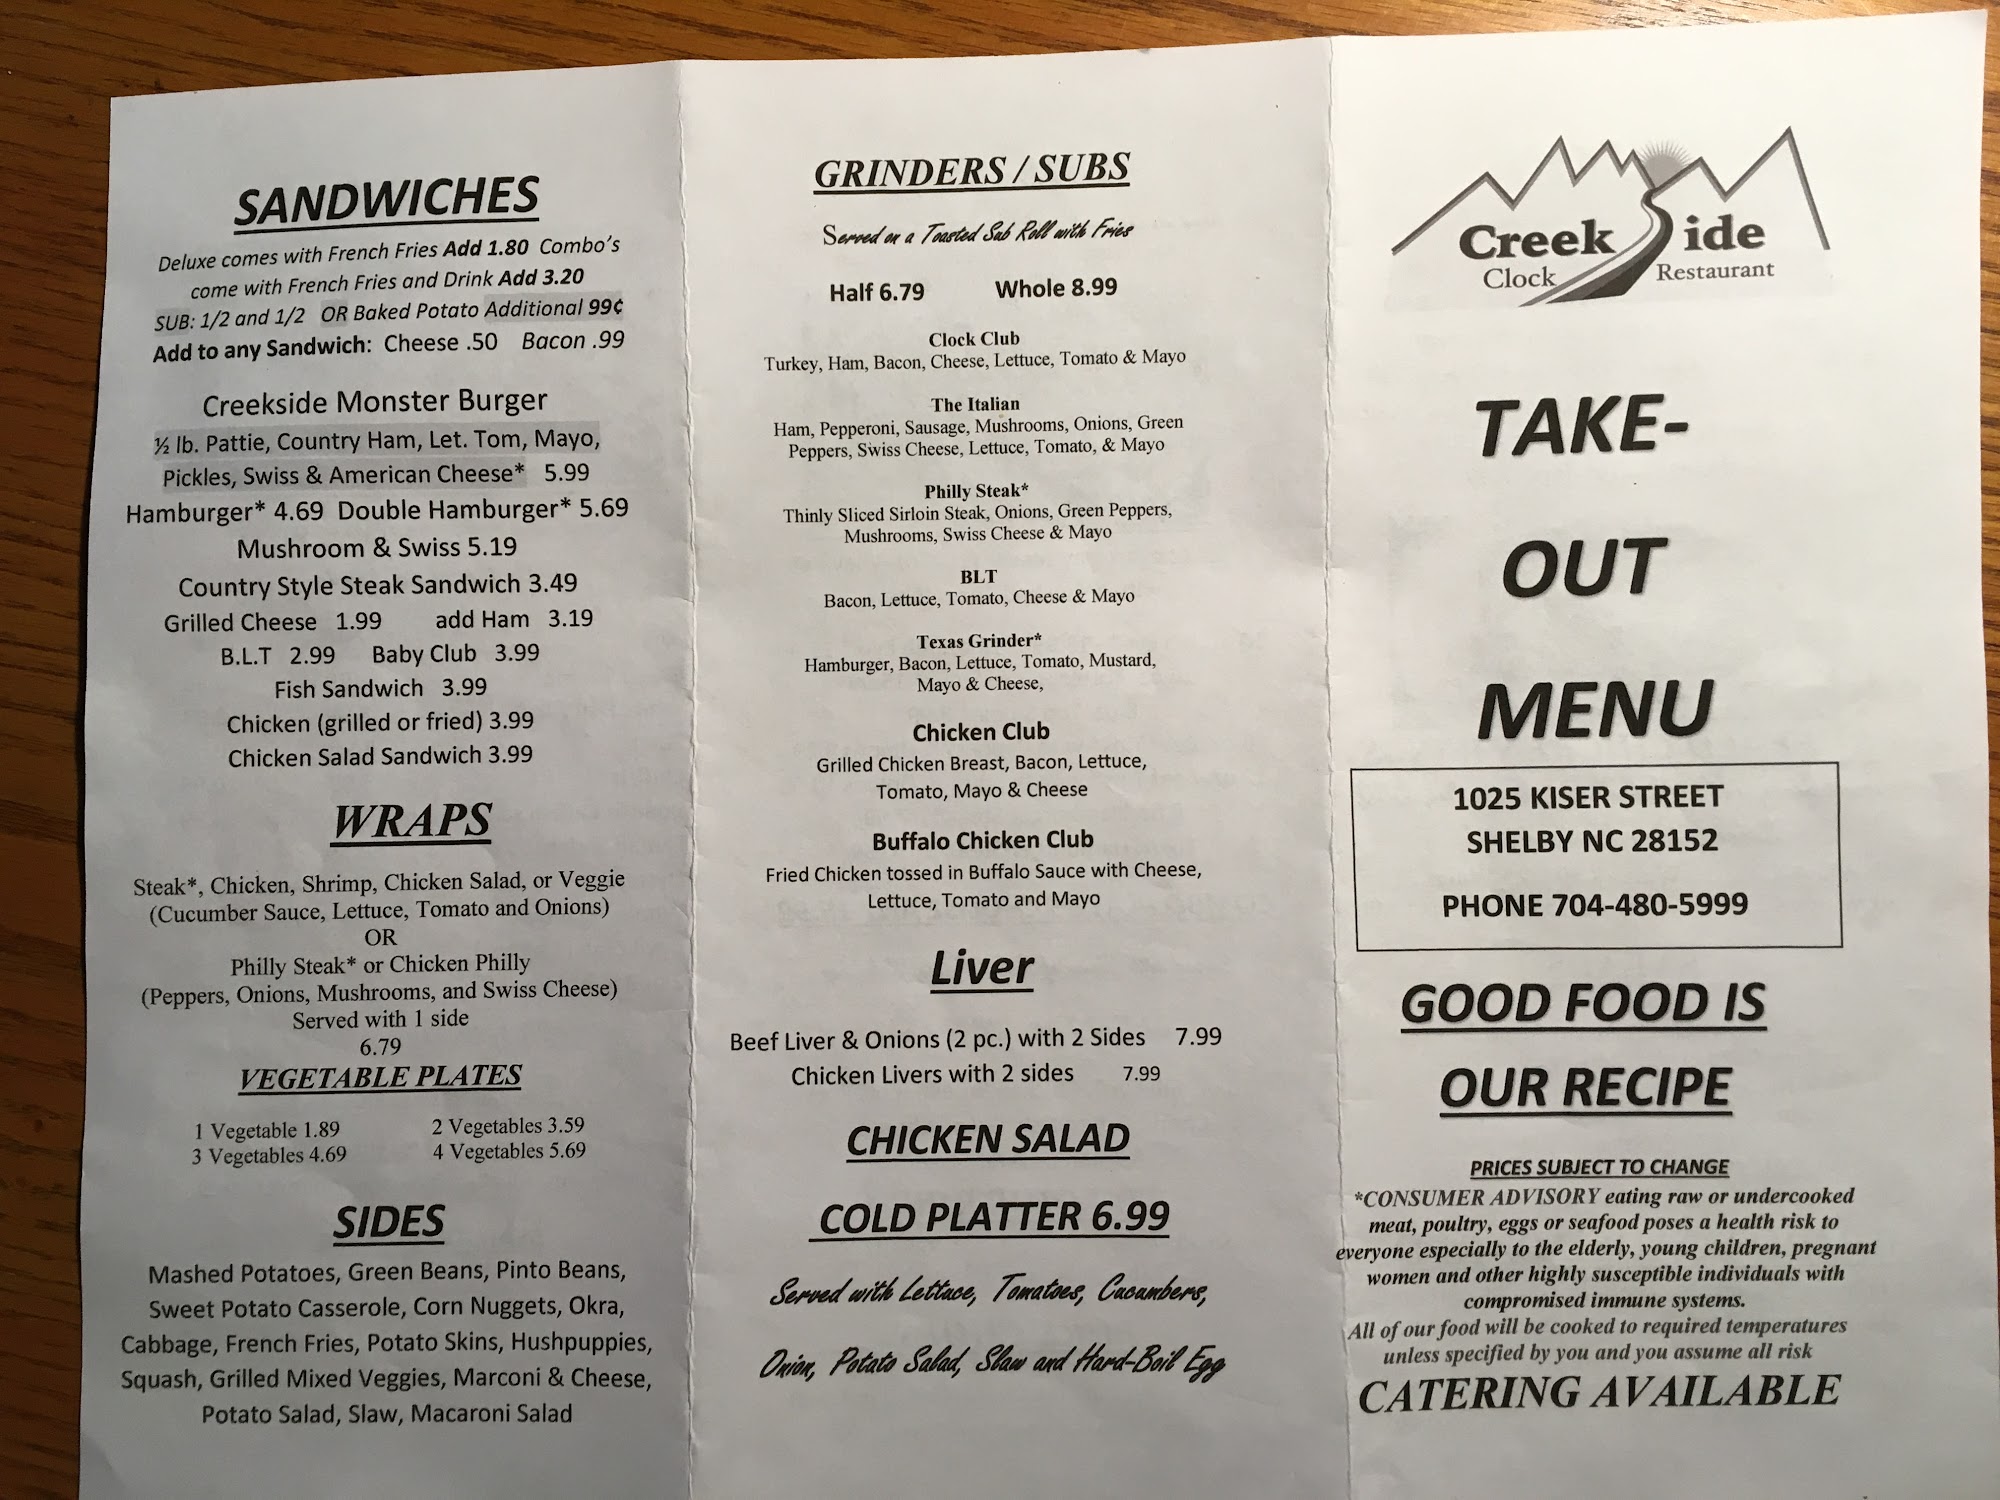 SANDWICHES
Deluxe comes with French Fries Add 1.80 Combo's
come with French Fries and Drink Add 3.20
SUB: 1/2 and 1/2 OR Baked Potato Additional 99¢
Add to any Sandwich: Cheese .50 Bacon .99
Creekside Monster Burger
½ lb. Pattie, Country Ham, Let. Tom, Mayo,
Pickles, Swiss & American Cheese* 5.99
Hamburger* 4.69 Double Hamburger* 5.69
Mushroom & Swiss 5.19
Country Style Steak Sandwich 3.49
Grilled Cheese 1.99 add Ham 3.19
B.L.T 2.99 Baby Club 3.99
Fish Sandwich 3.99
Chicken (grilled or fried) 3.99
Chicken Salad Sandwich 3.99
WRAPS
Steak*, Chicken, Shrimp, Chicken Salad, or Veggie
(Cucumber Sauce, Lettuce, Tomato and Onions)
OR
Philly Steak* or Chicken Philly
(Peppers, Onions, Mushrooms, and Swiss Cheese)
Served with 1 side
6.79
VEGETABLE PLATES
1 Vegetable 1.89 2 Vegetables 3.59
3 Vegetables 4.69 4 Vegetables 5.69
SIDES
Mashed Potatoes, Green Beans, Pinto Beans,
Sweet Potato Casserole, Corn Nuggets, Okra,
Cabbage, French Fries, Potato Skins, Hushpuppies,
Squash, Grilled Mixed Veggies, Marconi & Cheese,
Potato Salad, Slaw, Macaroni Salad
GRINDERS / SUBS
Served on a Toasted Sub Roll with Fries
Half 6.79 Whole 8.99
Clock Club
Turkey, Ham, Bacon, Cheese, Lettuce, Tomato & Mayo
The Italian
Ham, Pepperoni, Sausage, Mushrooms, Onions, Green
Peppers, Swiss Cheese, Lettuce, Tomato, & Mayo
Philly Steak*
Thinly Sliced Sirloin Steak, Onions, Green Peppers,
Mushrooms, Swiss Cheese & Mayo
BLT
Bacon, Lettuce, Tomato, Cheese & Mayo
Texas Grinder*
Hamburger, Bacon, Lettuce, Tomato, Mustard,
Mayo & Cheese,
Chicken Club
Grilled Chicken Breast, Bacon, Lettuce,
Tomato, Mayo & Cheese
Buffalo Chicken Club
Fried Chicken tossed in Buffalo Sauce with Cheese,
Lettuce, Tomato and Mayo
Liver
Beef Liver & Onions (2 pc.) with 2 Sides 7.99
Chicken Livers with 2 sides 7.99
CHICKEN SALAD
COLD PLATTER 6.99
Served with Lettuce, Tomatoes, Cucumbers,
Onion, Potato Salad, Slaw and Hard-Boil Egg
Creek Side
Clock Restaurant
TAKE-
OUT
MENU
1025 KISER STREET
SHELBY NC 28152
PHONE 704-480-5999
GOOD FOOD IS
OUR RECIPE
PRICES SUBJECT TO CHANGE
*CONSUMER ADVISORY eating raw or undercooked
meat, poultry, eggs or seafood poses a health risk to
everyone especially to the elderly, young children, pregnant
women and other highly susceptible individuals with
compromised immune systems.
All of our food will be cooked to required temperatures
unless specified by you and you assume all risk
CATERING AVAILABLE